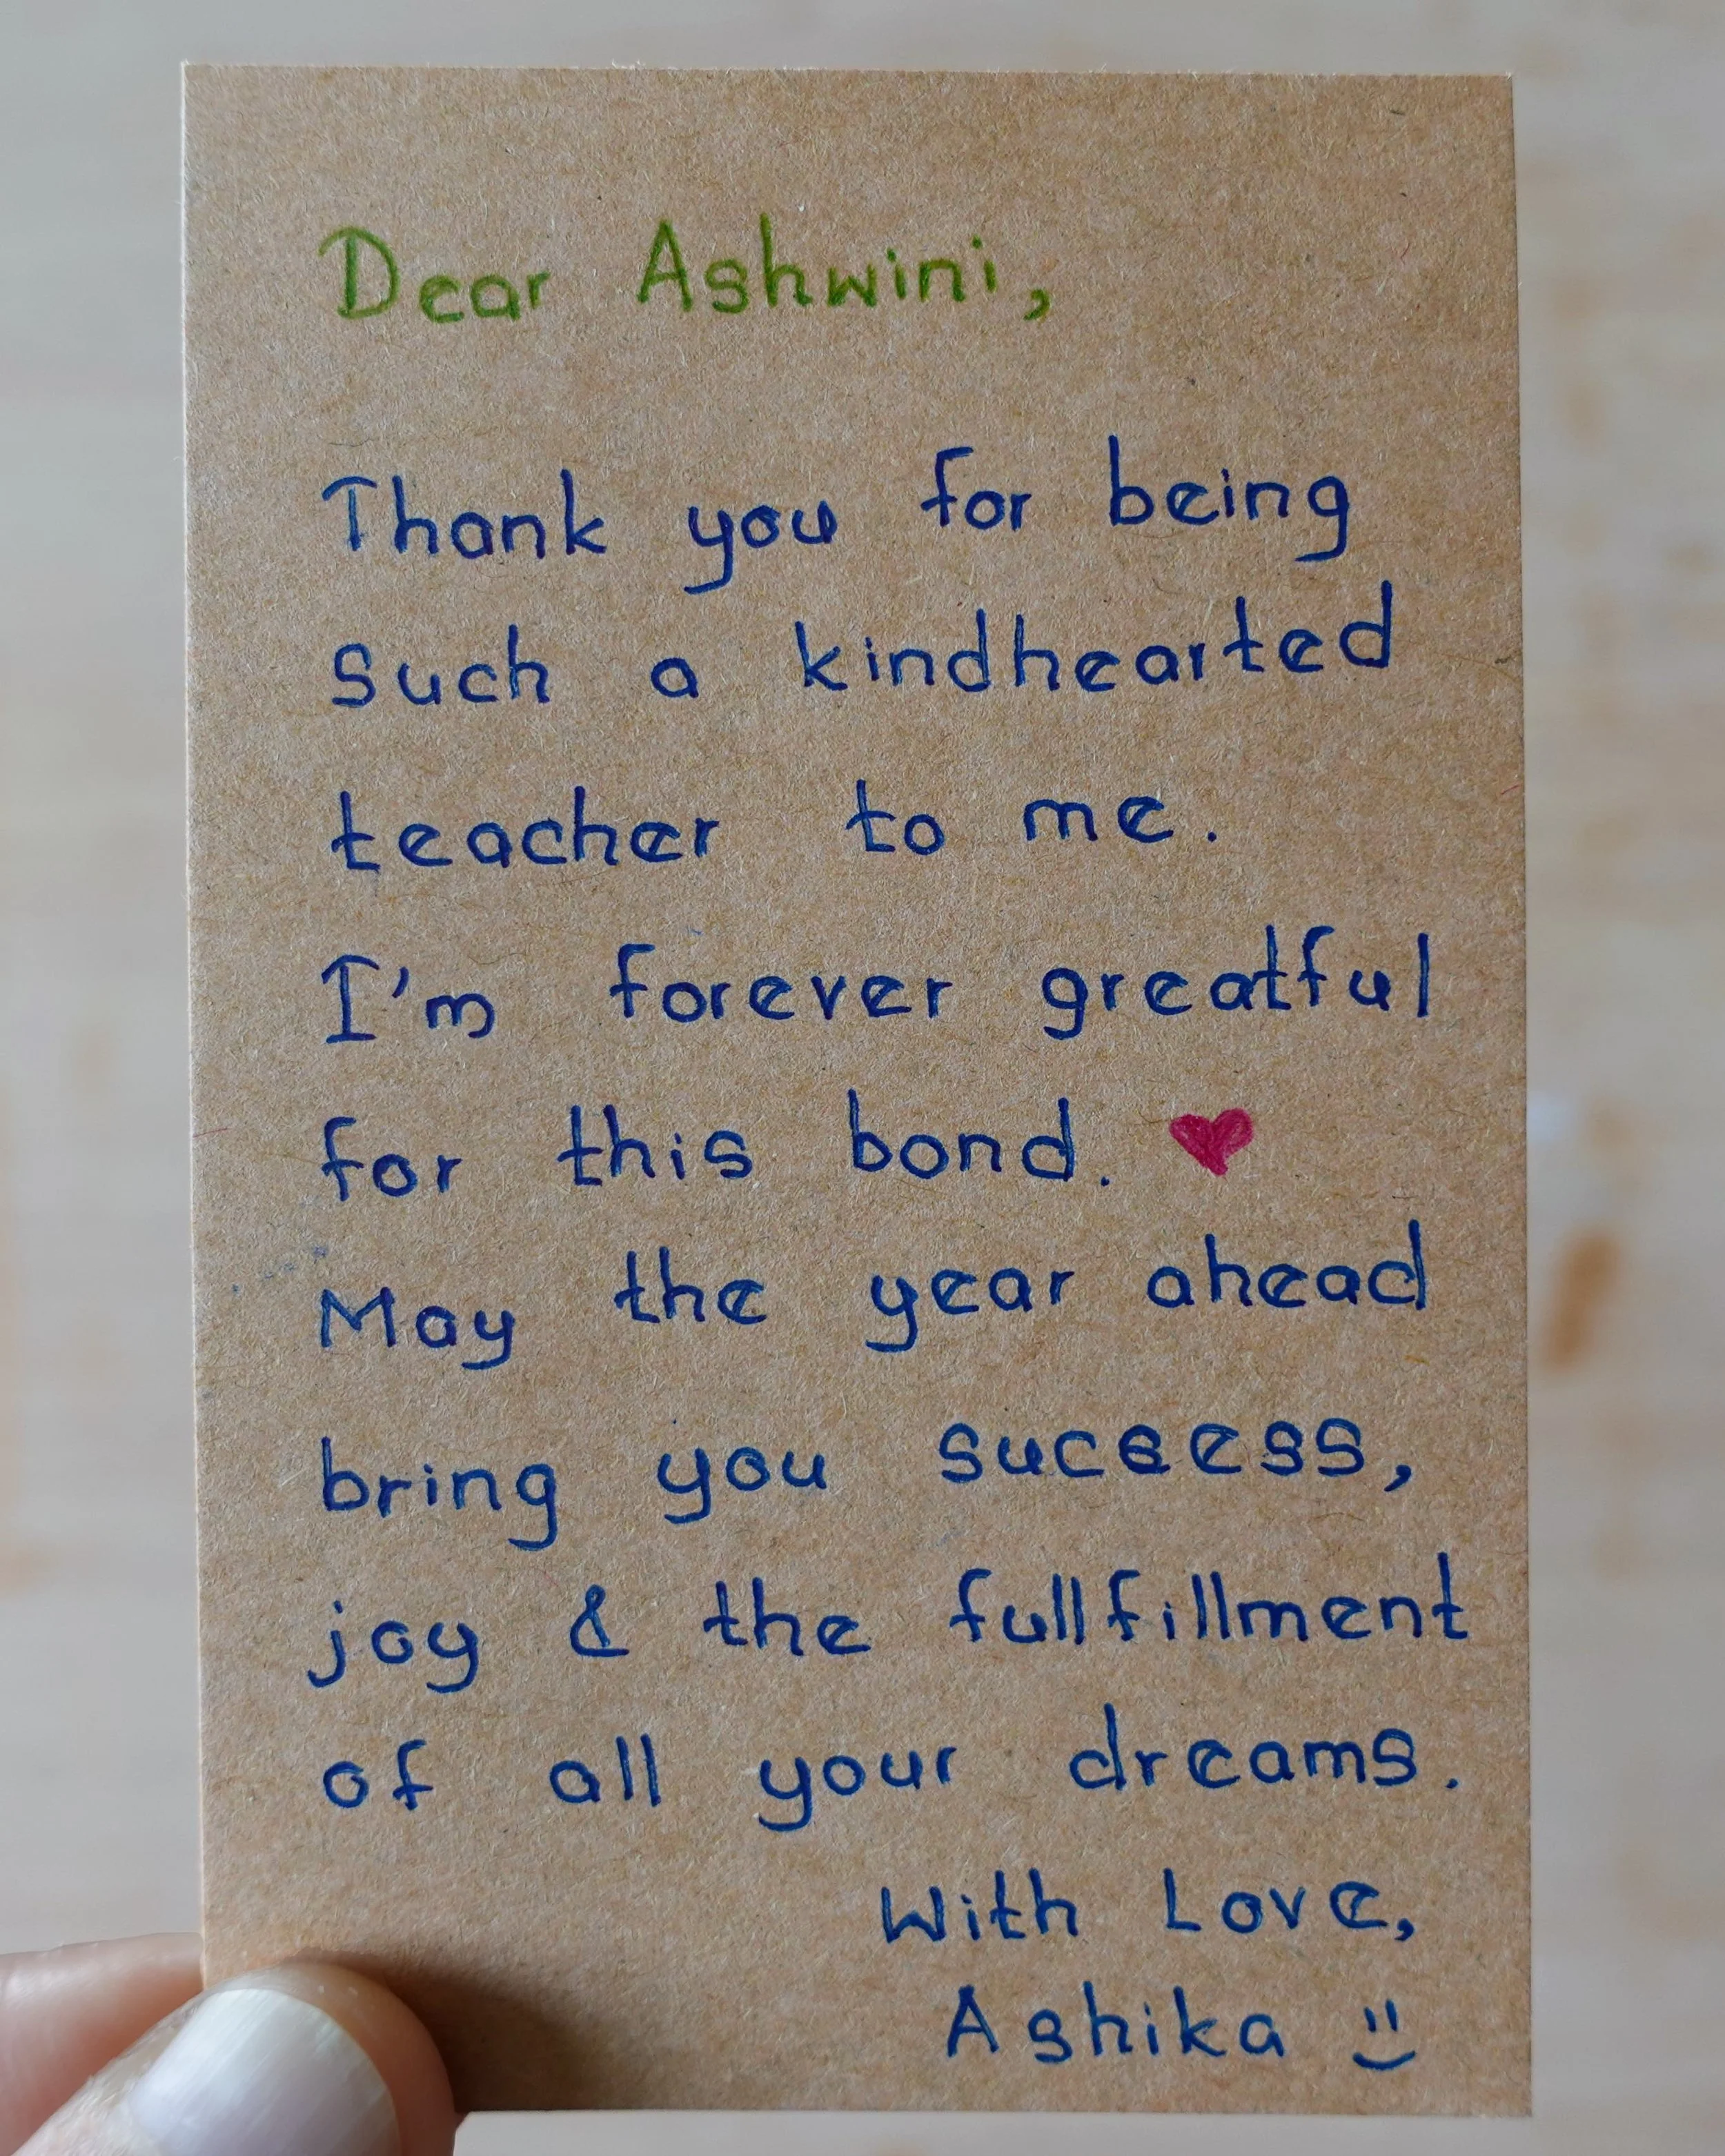 Dear Ashwini,
Thank you for being
such a kindhearted
teacher to me.
I'm forever greatful
for this bond. ♥
May the year ahead
bring you success,
joy & the fullfillment
of all your dreams.
With Love,
Ashika =)